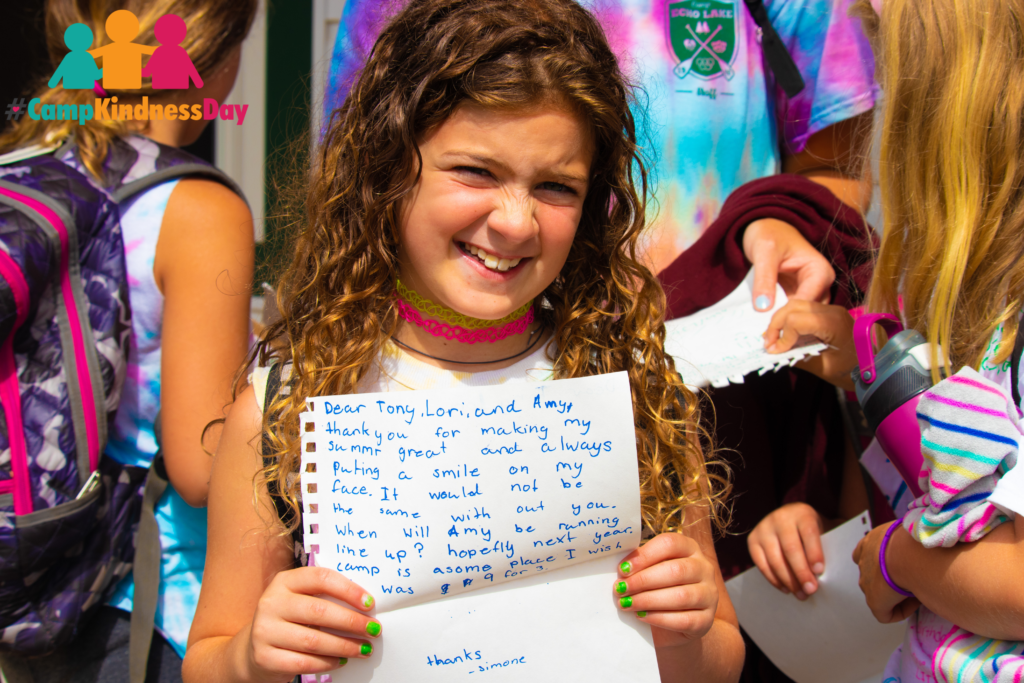 #CampKindnessDay
ECHO LAKE
Staff
Dear Tony, Lori, and Amy,
thank you for making my
summr great and always
puting a smile on my
face. It would not be
the same with out you.
When will Amy be running
line up? hopefly next year.
camp is asome place I wish
was 9 for 3.
thanks
-simone